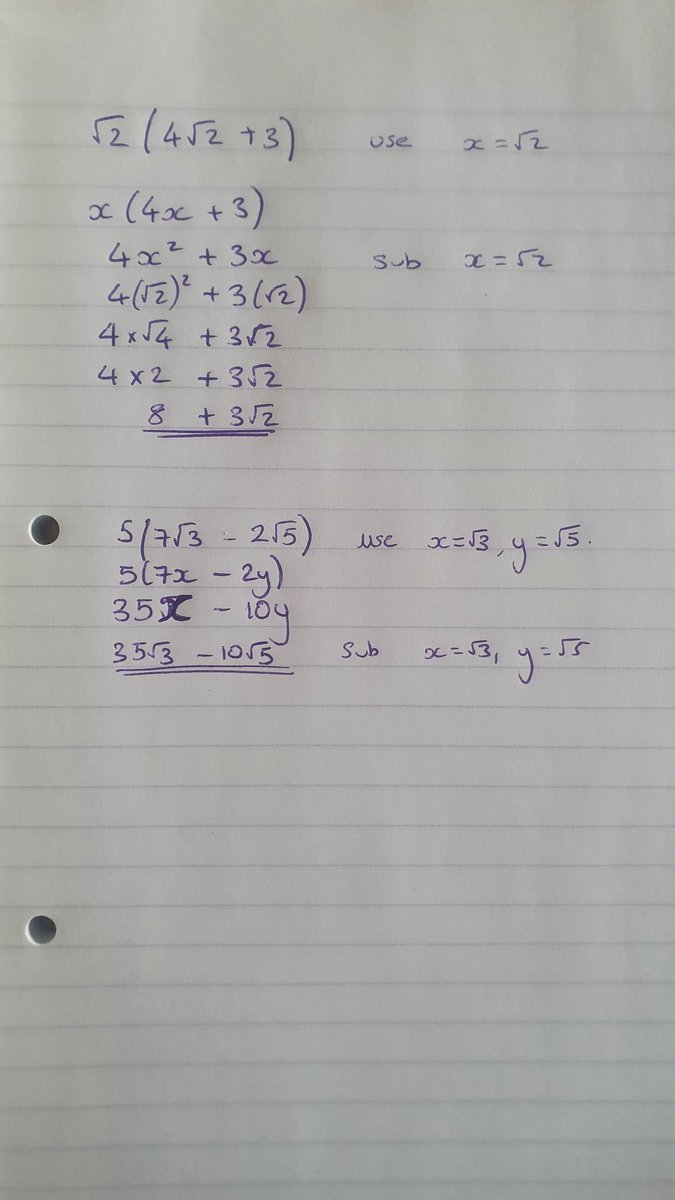 √2 (4√2 + 3) use x = √2
x (4x + 3)
4x² + 3x sub x = √2
4(√2)² + 3(√2)
4 × √4 + 3√2
4 × 2 + 3√2
8 + 3√2
5(7√3 - 2√5) use x = √3, y = √5.
5(7x - 2y)
35x - 10y
35√3 - 10√5 sub x = √3, y = √5